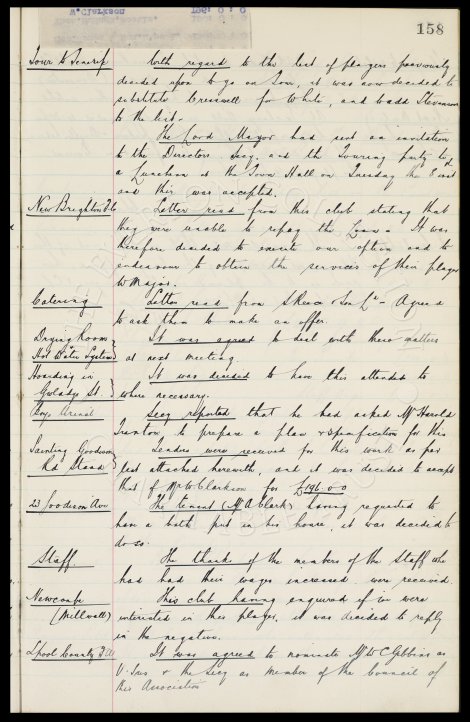 158
Tour to Tenerif With regard to the list of players previously
decided upon to go on Tour, it was now decided to
substitute Cresswell for White, and to add Stevenson
to the list.
The Lord Mayor had sent an invitation
to the Directors Secy. and the Touring party to
a Luncheon at the Town Hall on Tuesday the
and this was accepted.
New Brighton F.C. Letter read from this club stating that
they were unable to repay the Loan. It was
therefore decided to execute our option and to
endeavour to obtain the services of their player
Catering Letter read from & Son Ld. - Agreed
to ask them to make an offer.
Drying Room It was agreed to deal with these matters
Hot Water System at next meeting
Hoarding in It was decided to have this attended to
Gwladys St. where necessary.
Secy reported that he had asked Mr Harold
to prepare a plan & specification for this
Painting Goodison Tenders were received for this work as per
Rd. Stand list attached herewith, and it was decided to accept
that of W Clarkson for £196.0.0
23 Goodison Ave The tenant (Mr A Clark) having requested to
have a bath put in his house, it was decided to
do so.
Staff. The thanks of the members of the Staff who
had had their wages increased were received.
Newcombe This club having enquired if we were
(Millwall) interested in this player, it was decided to reply
in the negative.
Lpool County F.A. It was agreed to nominate Mr W C Gibbins as
V. Pres & the Secy as member of the Council of
this Association